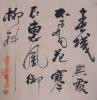 春城無處
不飛花寒
食東風御
柳斜